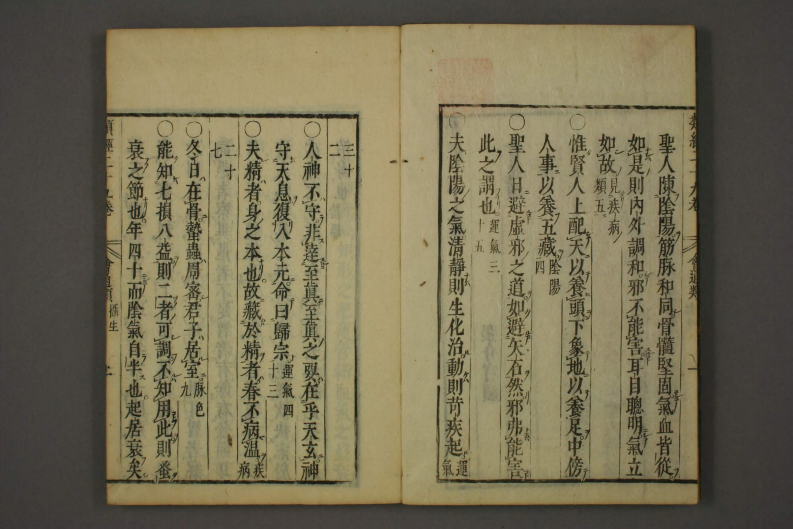 聖人陳陰陽筋脉和同骨髓堅固氣血皆從
如是則内外調和邪不能害耳目聰明氣立
如故 見疾病類五
〇惟賢人上配天以養頭下象地以養足中傍
人事以養五藏 陰陽四
〇聖人日避虚邪之道如避矢石然邪弗能害
此之謂也 運氣三十五
〇夫陰陽之氣清靜則生化治動則苛疾起 運氣
三十二
〇人神不守非達至眞至眞之要在乎天玄神
守天息復入本元命曰歸宗 運氣四十三
〇夫精者身之本也故藏於精者春不病温 疾病
二十七
〇冬日在骨蟄蟲周密君子居室 脉色九
〇能知七損八益則二者可調不知用此則蚤
衰之節也年四十而陰氣自半也起居衰矣
類經二十九卷 會通類 攝生